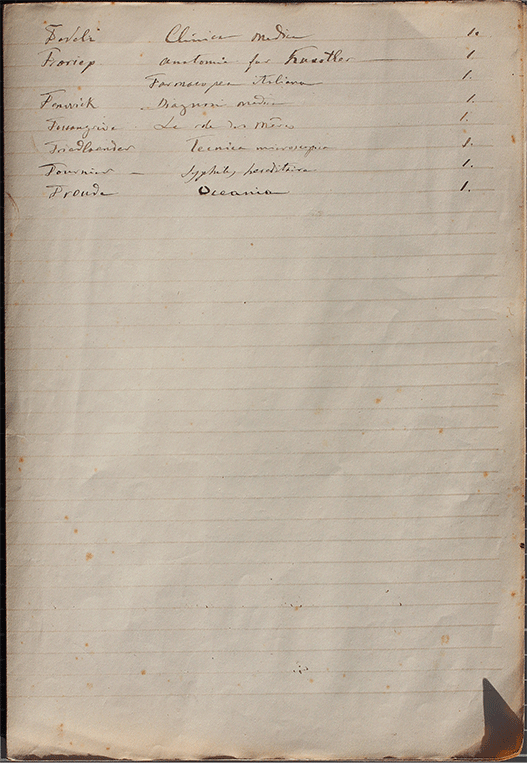 Fedeli Clinica medica 1.
Froriep anatomie fur Kunstler — 1.
Farmacopea italiana 1.
Fenwick Diagnosi medica 1.
Le role des mères 1.
Friedlaender Tecnica microscopica 1.
Fournier — Syphilis hereditaire 1.
Froude Oceania 1.